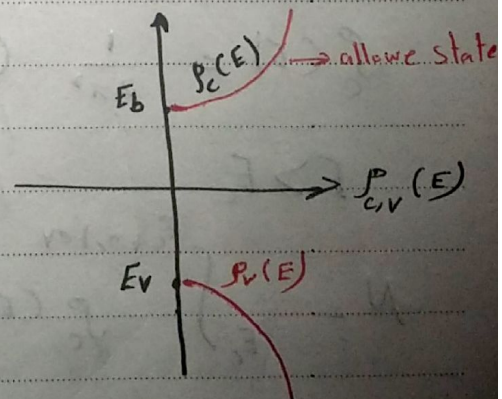 ρc(E) → allowe state
Eb
ρc,v (E)
Ev ρv(E)